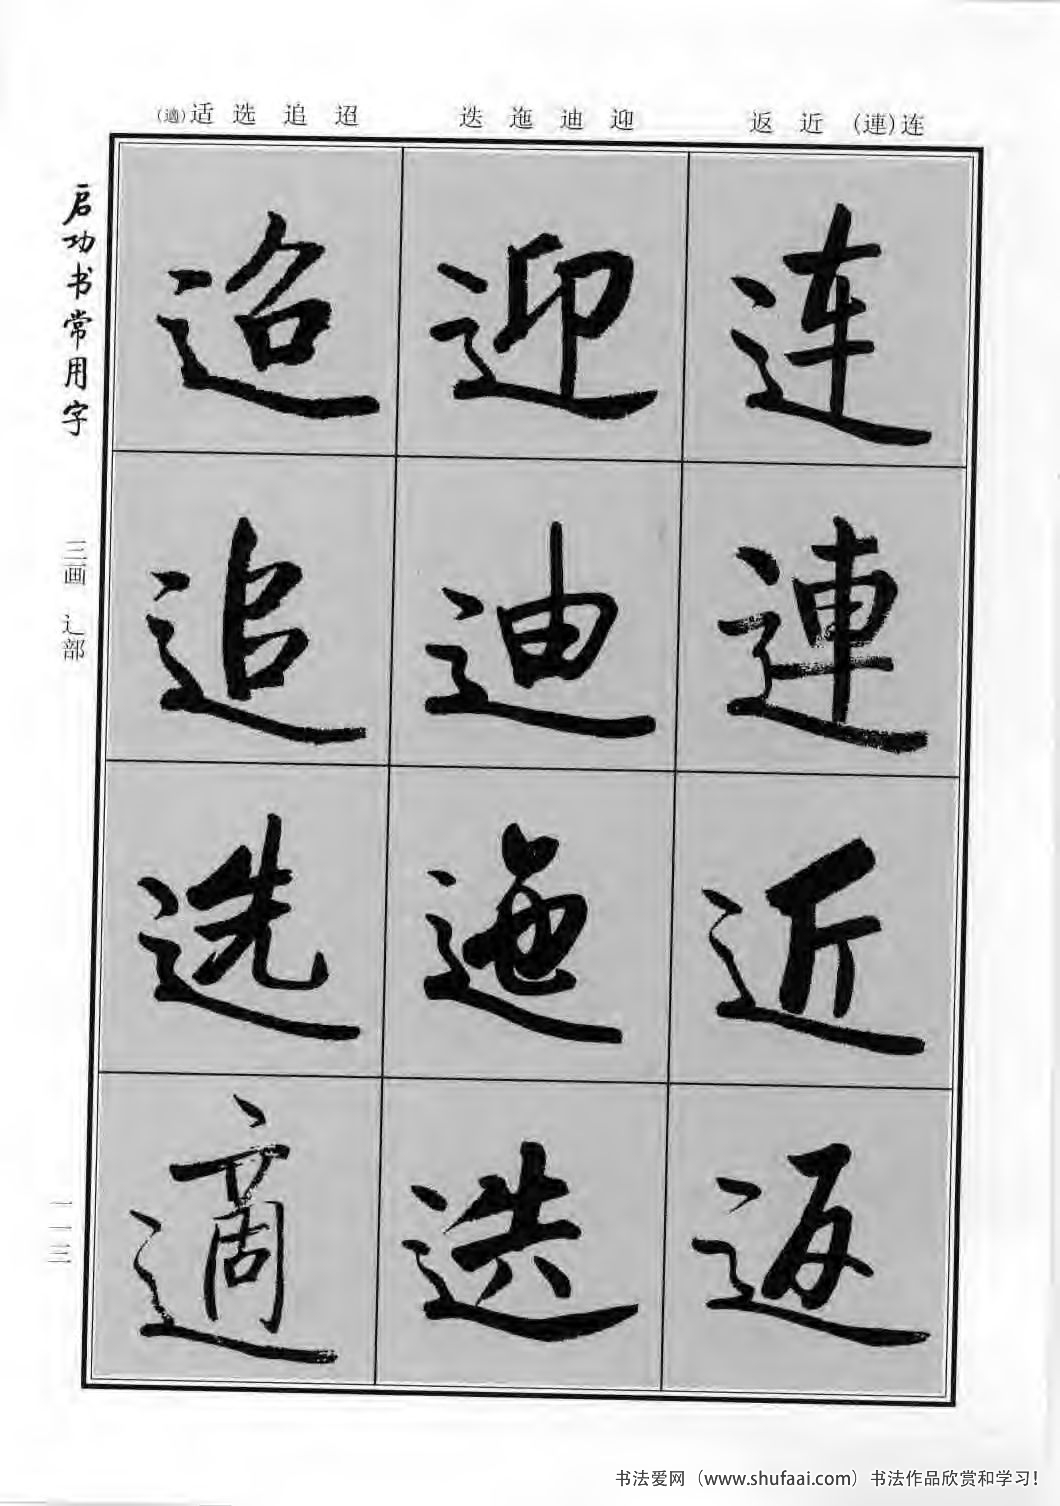 连(連) 近 返
迎 迪 迤 迭
迢 追 选 适(適)
连
連
近
返
迎
迪
迤
迭
迢
追
选
適
启功书常用字
三画 辶部
一一三
书法爱网（www.shufaai.com）书法作品欣赏和学习!